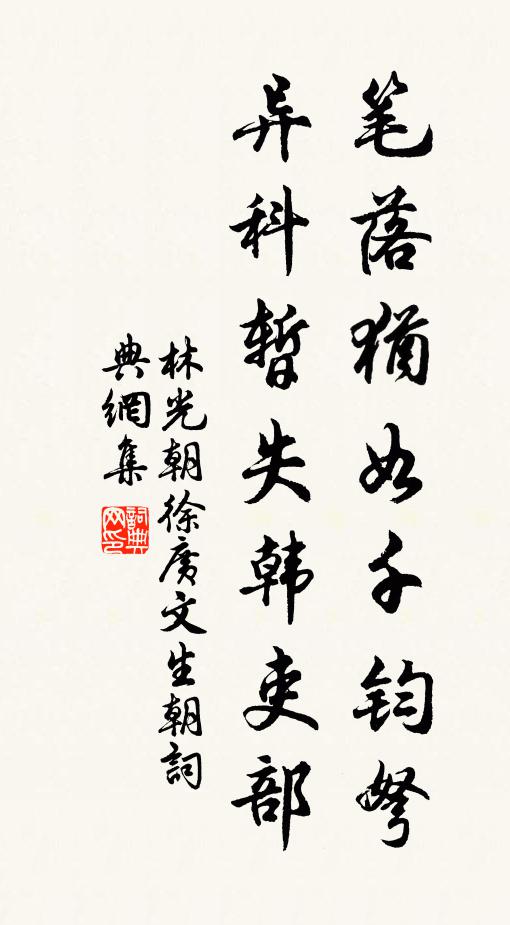 笔落犹如千钧弩
异科暂失韩吏部
林光朝徐廣文生朝詞
典網集
詞典网印